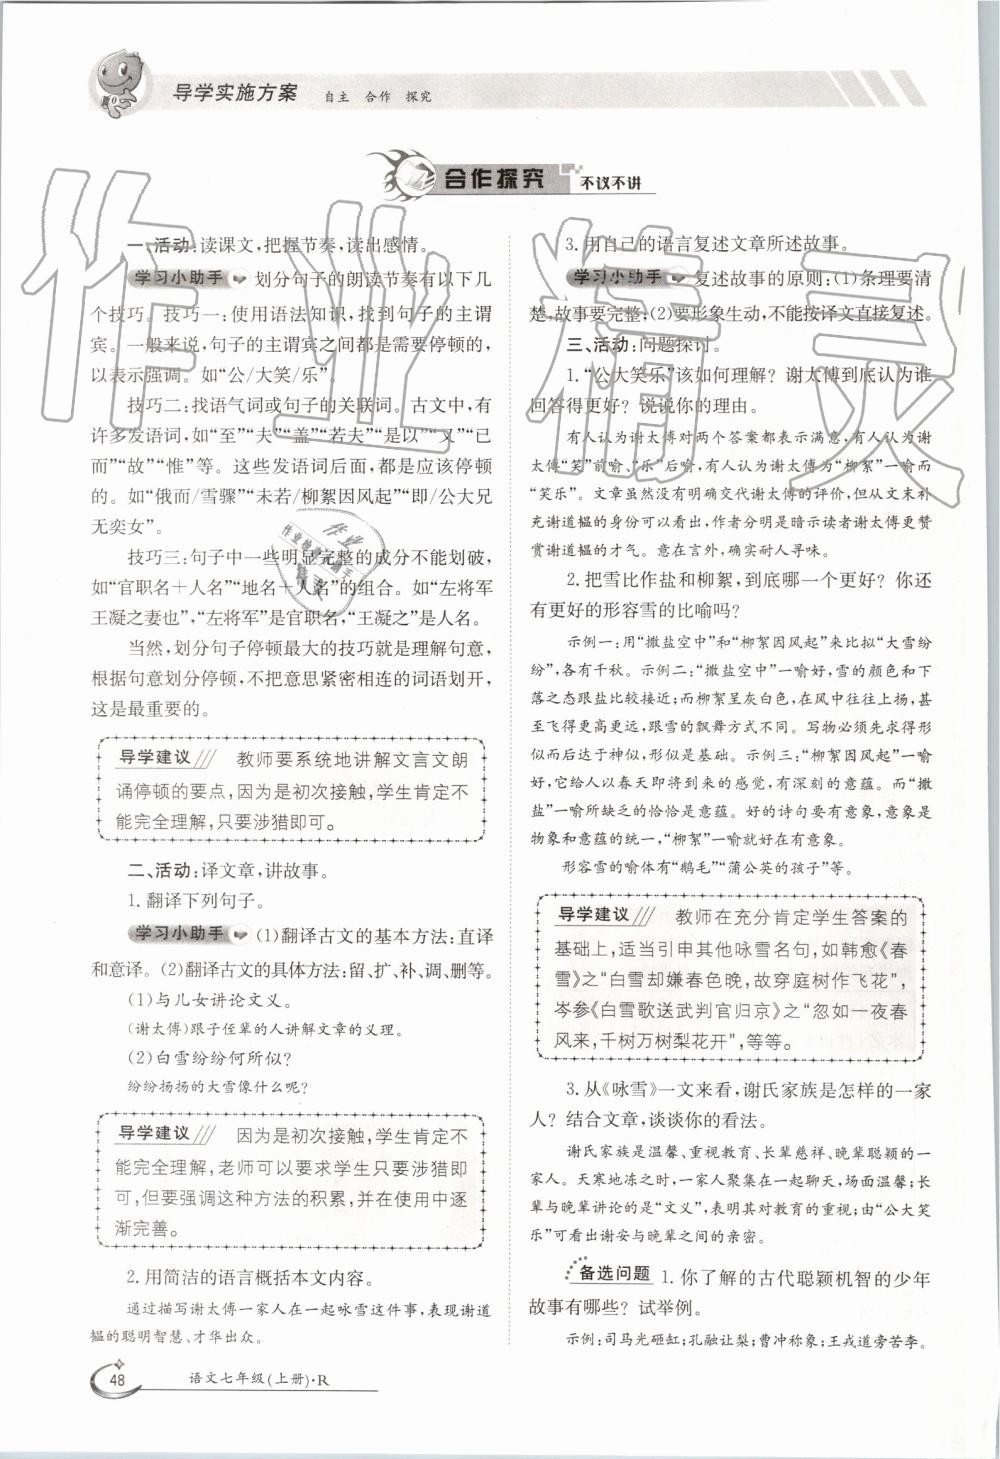 导学实施方案 自主 合作 探究
合作探究 不议不讲
一、活动:读课文,把握节奏,读出感情。
学习小助手 划分句子的朗读节奏有以下几
个技巧。技巧一:使用语法知识,找到句子的主谓
宾。一般来说,句子的主谓宾之间都是需要停顿的,
以表示强调。如“公/大笑/乐”
技巧二:找语气词或句子的关联词。古文中,有
许多发语词,如“至”“夫”“盖”“若夫”“是以”“又”“已
而”“故”“惟”等。这些发语词后面,都是应该停顿
的。如“俄而/雪骤”“未若/柳絮因风起”“即/公大兄
无奕女”。
技巧三:句子中一些明显完整的成分不能划破,
如“官职名+人名”“地名+人名”的组合。如“左将军
王凝之妻也”,“左将军”是官职名,“王凝之”是人名。
当然,划分句子停顿最大的技巧就是理解句意,
根据句意划分停顿,不把意思紧密相连的词语划开,
这是最重要的。
导学建议 教师要系统地讲解文言文朗
诵停顿的要点,因为是初次接触,学生肯定不
能完全理解,只要涉猎即可。
二、活动:译文章,讲故事。
1.翻译下列句子。
学习小助手 (1)翻译古文的基本方法:直译
和意译。(2)翻译古文的具体方法:留、扩、补、调、删等。
(1)与儿女讲论文义。
(谢太傅)跟子侄辈的人讲解文章的义理。
(2)白雪纷纷何所似?
纷纷扬扬的大雪像什么呢?
导学建议 因为是初次接触,学生肯定不
能完全理解,老师可以要求学生只要涉猎即
可,但要强调这种方法的积累,并在使用中逐
渐完善。
2.用简洁的语言概括本文内容。
通过描写谢太傅一家人在一起咏雪这件事,表现谢道
韫的聪明智慧、才华出众。
3.用自己的语言复述文章所述故事。
学习小助手 复述故事的原则:(1)条理要清
楚,故事要完整;(2)要形象生动,不能按译文直接复述。
三、活动:问题探讨。
1.“公大笑乐”该如何理解?谢太傅到底认为谁
回答得更好?说说你的理由。
有人认为谢太傅对两个答案都表示满意,有人认为谢
太傅“笑”前喻、“乐”后喻,有人认为谢太傅为“柳絮”一喻而
“笑乐”。文章虽然没有明确交代谢太傅的评价,但从文末补
充谢道韫的身份可以看出,作者分明是暗示读者谢太傅更赞
赏谢道韫的才气。意在言外,确实耐人寻味。
2.把雪比作盐和柳絮,到底哪一个更好?你还
有更好的形容雪的比喻吗?
示例一:用“撒盐空中”和“柳絮因风起”来比拟“大雪纷
纷”,各有千秋。示例二:“撒盐空中”一喻好,雪的颜色和下
落之态跟盐比较接近;而柳絮呈灰白色,在风中往往上扬,甚
至飞得更高更远,跟雪的飘舞方式不同。写物必须先求得形
似而后达于神似,形似是基础。示例三:“柳絮因风起”一喻
好,它给人以春天即将到来的感觉,有深刻的意蕴。而“撒
盐”一喻所缺乏的恰恰是意蕴。好的诗句要有意象,意象是
物象和意蕴的统一,“柳絮”一喻就好在有意象。
形容雪的喻体有“鹅毛”“蒲公英的孩子”等。
导学建议 教师在充分肯定学生答案的
基础上,适当引申其他咏雪名句,如韩愈《春
雪》之“白雪却嫌春色晚,故穿庭树作飞花”,
岑参《白雪歌送武判官归京》之“忽如一夜春
风来,千树万树梨花开”,等等。
3.从《咏雪》一文来看,谢氏家族是怎样的一家
人?结合文章,谈谈你的看法。
谢氏家族是温馨、重视教育、长辈慈祥、晚辈聪颖的一
家人。天寒地冻之时,一家人聚集在一起聊天,场面温馨;长
辈与晚辈讲论的是“文义”,表明其对教育的重视;由“公大笑
乐”可以看出谢安与晚辈之间的亲密。
备选问题 1.你了解的古代聪颖机智的少年
故事有哪些?试举例。
示例:司马光砸缸;孔融让梨;曹冲称象;王戎道旁苦李。
48 语文七年级(上册)·R
作业精灵